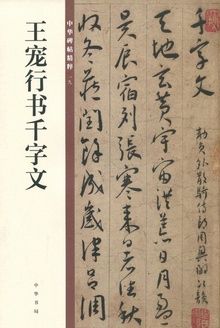 中华碑帖精粹
王宠行书千字文
中华书局
千字文
勅員外散騎侍郎周興嗣次韻
天地玄黄宇宙洪荒日月盈
昃辰宿列張寒来暑往秋
收冬蔵閏餘成歲律吕調